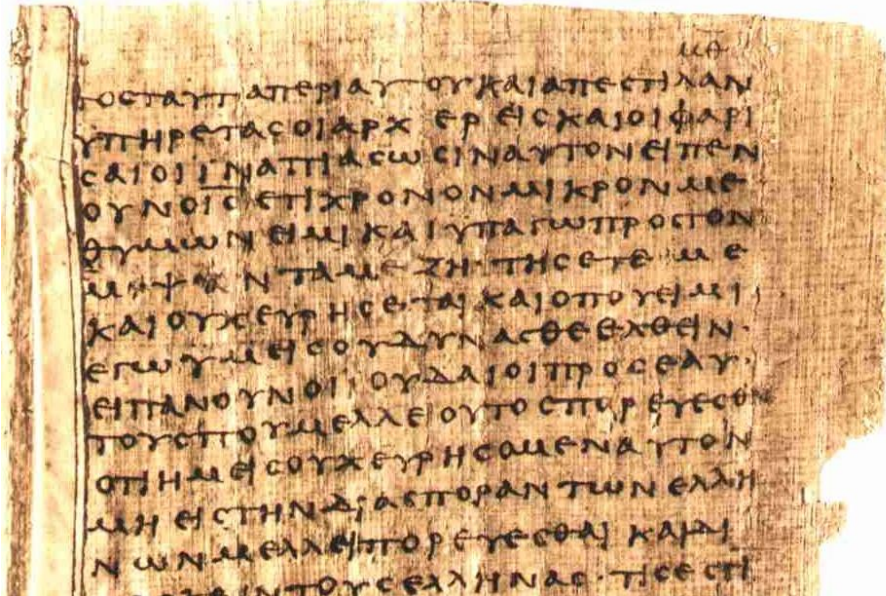 ΜΘ
ΤΟCΤΑΥΤΑΠΕΡΙΑΥΤΟΥΚΑΙΑΠΕCΤΙΛΑΝ
ΥΠΗΡΕΤΑCΟΙΑΡΧΙΕΡΕΙCΚΑΙΟΙΦΑΡΙ
CΑΙΟΙΙΝΑΠΙΑCΩCΙΝΑΥΤΟΝΕΙΠΕΝ
ΟΥΝΟΙ̅C̅ΕΤΙΧΡΟΝΟΝΜΙΚΡΟΝΜΕ
ΘΥΜΩΝΕΙΜΙΚΑΙΥΠΑΓΩΠΡΟCΤΟΝ
ΠΕΜΨΑΝΤΑΜΕΖΗΤΗCΕΤΕΜΕ
ΚΑΙΟΥΧΕΥΡΗCΕΤΑΙΚΑΙΟΠΟΥΕΙΜΙ
ΕΓΩΥΜΕΙCΟΥΔΥΝΑCΘΕΕΛΘΕΙΝ·
ΕΙΠΑΝΟΥΝΟΙΙΟΥΔΑΙΟΙΠΡΟCΕΑΥ·
ΤΟΥCΠΟΥΜΕΛΛΕΙΟΥΤΟCΠΟΡΕΥΕCΘΑΙ
ΟΤΙΗΜΕΙCΟΥΧΕΥΡΗCΟΜΕΝΑΥΤΟΝ
ΜΗΕΙCΤΗΝΔΙΑCΠΟΡΑΝΤΩΝΕΛΛΗ
ΝΩΝΜΕΛΛΕΙΠΟΡΕΥΕCΘΑΙΚΑΙΔΙ
ΤΟΥCΕΛΛΗΝΑC·ΤΙCΕCΤΙ